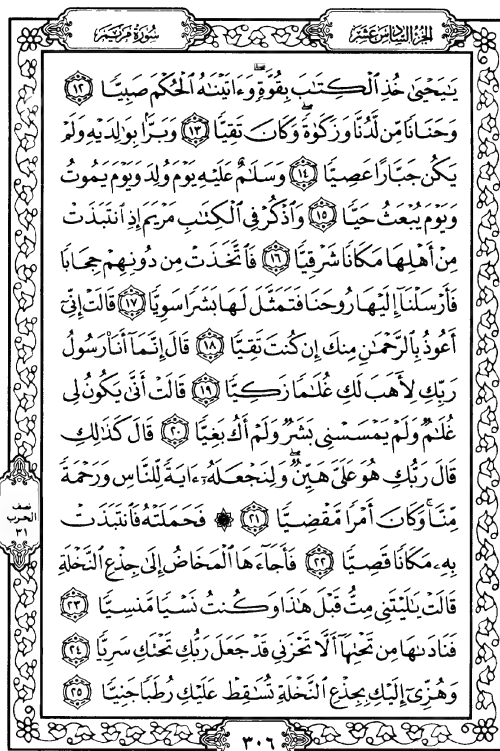 الجزء السادس عشر
سورة مريم
يَٰيَحْيَىٰ خُذِ ٱلْكِتَٰبَ بِقُوَّةٖۖ وَءَاتَيْنَٰهُ ٱلْحُكْمَ صَبِيّٗا ١٢
وَحَنَانٗا مِّن لَّدُنَّا وَزَكَوٰةٗۖ وَكَانَ تَقِيّٗا ١٣ وَبَرَّۢا بِوَٰلِدَيْهِ وَلَمْ
يَكُن جَبَّارًا عَصِيّٗا ١٤ وَسَلَٰمٌ عَلَيْهِ يَوْمَ وُلِدَ وَيَوْمَ يَمُوتُ
وَيَوْمَ يُبْعَثُ حَيّٗا ١٥ وَٱذْكُرْ فِي ٱلْكِتَٰبِ مَرْيَمَ إِذِ ٱنتَبَذَتْ
مِنْ أَهْلِهَا مَكَانٗا شَرْقِيّٗا ١٦ فَٱتَّخَذَتْ مِن دُونِهِمْ حِجَابٗا
فَأَرْسَلْنَآ إِلَيْهَا رُوحَنَا فَتَمَثَّلَ لَهَا بَشَرٗا سَوِيّٗا ١٧ قَالَتْ إِنِّيٓ
أَعُوذُ بِٱلرَّحْمَٰنِ مِنكَ إِن كُنتَ تَقِيّٗا ١٨ قَالَ إِنَّمَآ أَنَا۠ رَسُولُ
رَبِّكِ لِأَهَبَ لَكِ غُلَٰمٗا زَكِيّٗا ١٩ قَالَتْ أَنَّىٰ يَكُونُ لِي
غُلَٰمٞ وَلَمْ يَمْسَسْنِي بَشَرٞ وَلَمْ أَكُ بَغِيّٗا ٢٠ قَالَ كَذَٰلِكِ
قَالَ رَبُّكِ هُوَ عَلَيَّ هَيِّنٞۖ وَلِنَجْعَلَهُۥٓ ءَايَةٗ لِّلنَّاسِ وَرَحْمَةٗ
مِّنَّاۚ وَكَانَ أَمْرٗا مَّقْضِيّٗا ٢١ ۞ فَحَمَلَتْهُ فَٱنتَبَذَتْ
بِهِۦ مَكَانٗا قَصِيّٗا ٢٢ فَأَجَآءَهَا ٱلْمَخَاضُ إِلَىٰ جِذْعِ ٱلنَّخْلَةِ
قَالَتْ يَٰلَيْتَنِي مِتُّ قَبْلَ هَٰذَا وَكُنتُ نَسْيٗا مَّنسِيّٗا ٢٣
فَنَادَىٰهَا مِن تَحْتِهَآ أَلَّا تَحْزَنِي قَدْ جَعَلَ رَبُّكِ تَحْتَكِ سَرِيّٗا ٢٤
وَهُزِّيٓ إِلَيْكِ بِجِذْعِ ٱلنَّخْلَةِ تُسَٰقِطْ عَلَيْكِ رُطَبٗا جَنِيّٗا ٢٥
نصف
الحزب
٣١
٣٠٦